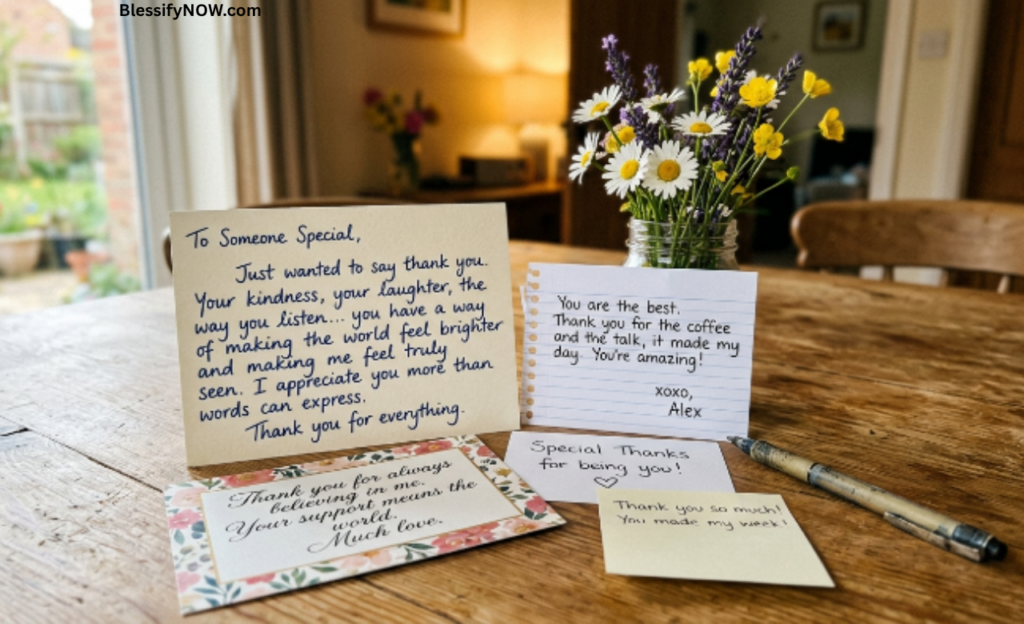 BlessifyNOW.com
To Someone Special,
Just wanted to say thank you.
Your kindness, your laughter, the
way you listen... you have a way
of making the world feel brighter
and making me feel truly
seen. I appreciate you more than
words can express.
Thank you for everything.
You are the best.
Thank you for the coffee
and the talk, it made my
day. You're amazing!
xoxo,
Alex
Special Thanks
for being you!
Thank you for always
believing in me.
Your support means the
world.
Much love.
Thank you so much!
You made my week!